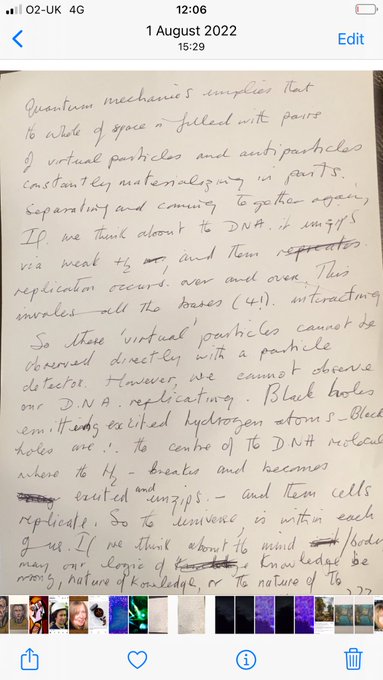 O2-UK 4G
12:06
1 August 2022
15:29
Edit
Quantum mechanics implies that
the whole of space is filled with pairs
of virtual particles and antiparticles
constantly materializing in pairs.
Separating and coming together again,
If we think about the DNA. it unzips
via weak H2, and then
replication occurs. over and over. This
involves all the bases (4!). interacting
So these 'virtual' particles cannot be
observed directly with a particle
detector. However, we cannot observe
our D.N.A. replicating. Black holes
emitting excited hydrogen atoms - Black
holes are the centre of the DNA molecule
where the H2 - breaks and becomes
excited and unzips. - and then cells
replicate. So the universe, is within each
of us. If we think about the mind /body
may our logic of Knowledge be
wrong, nature of knowledge, or the nature of the
???